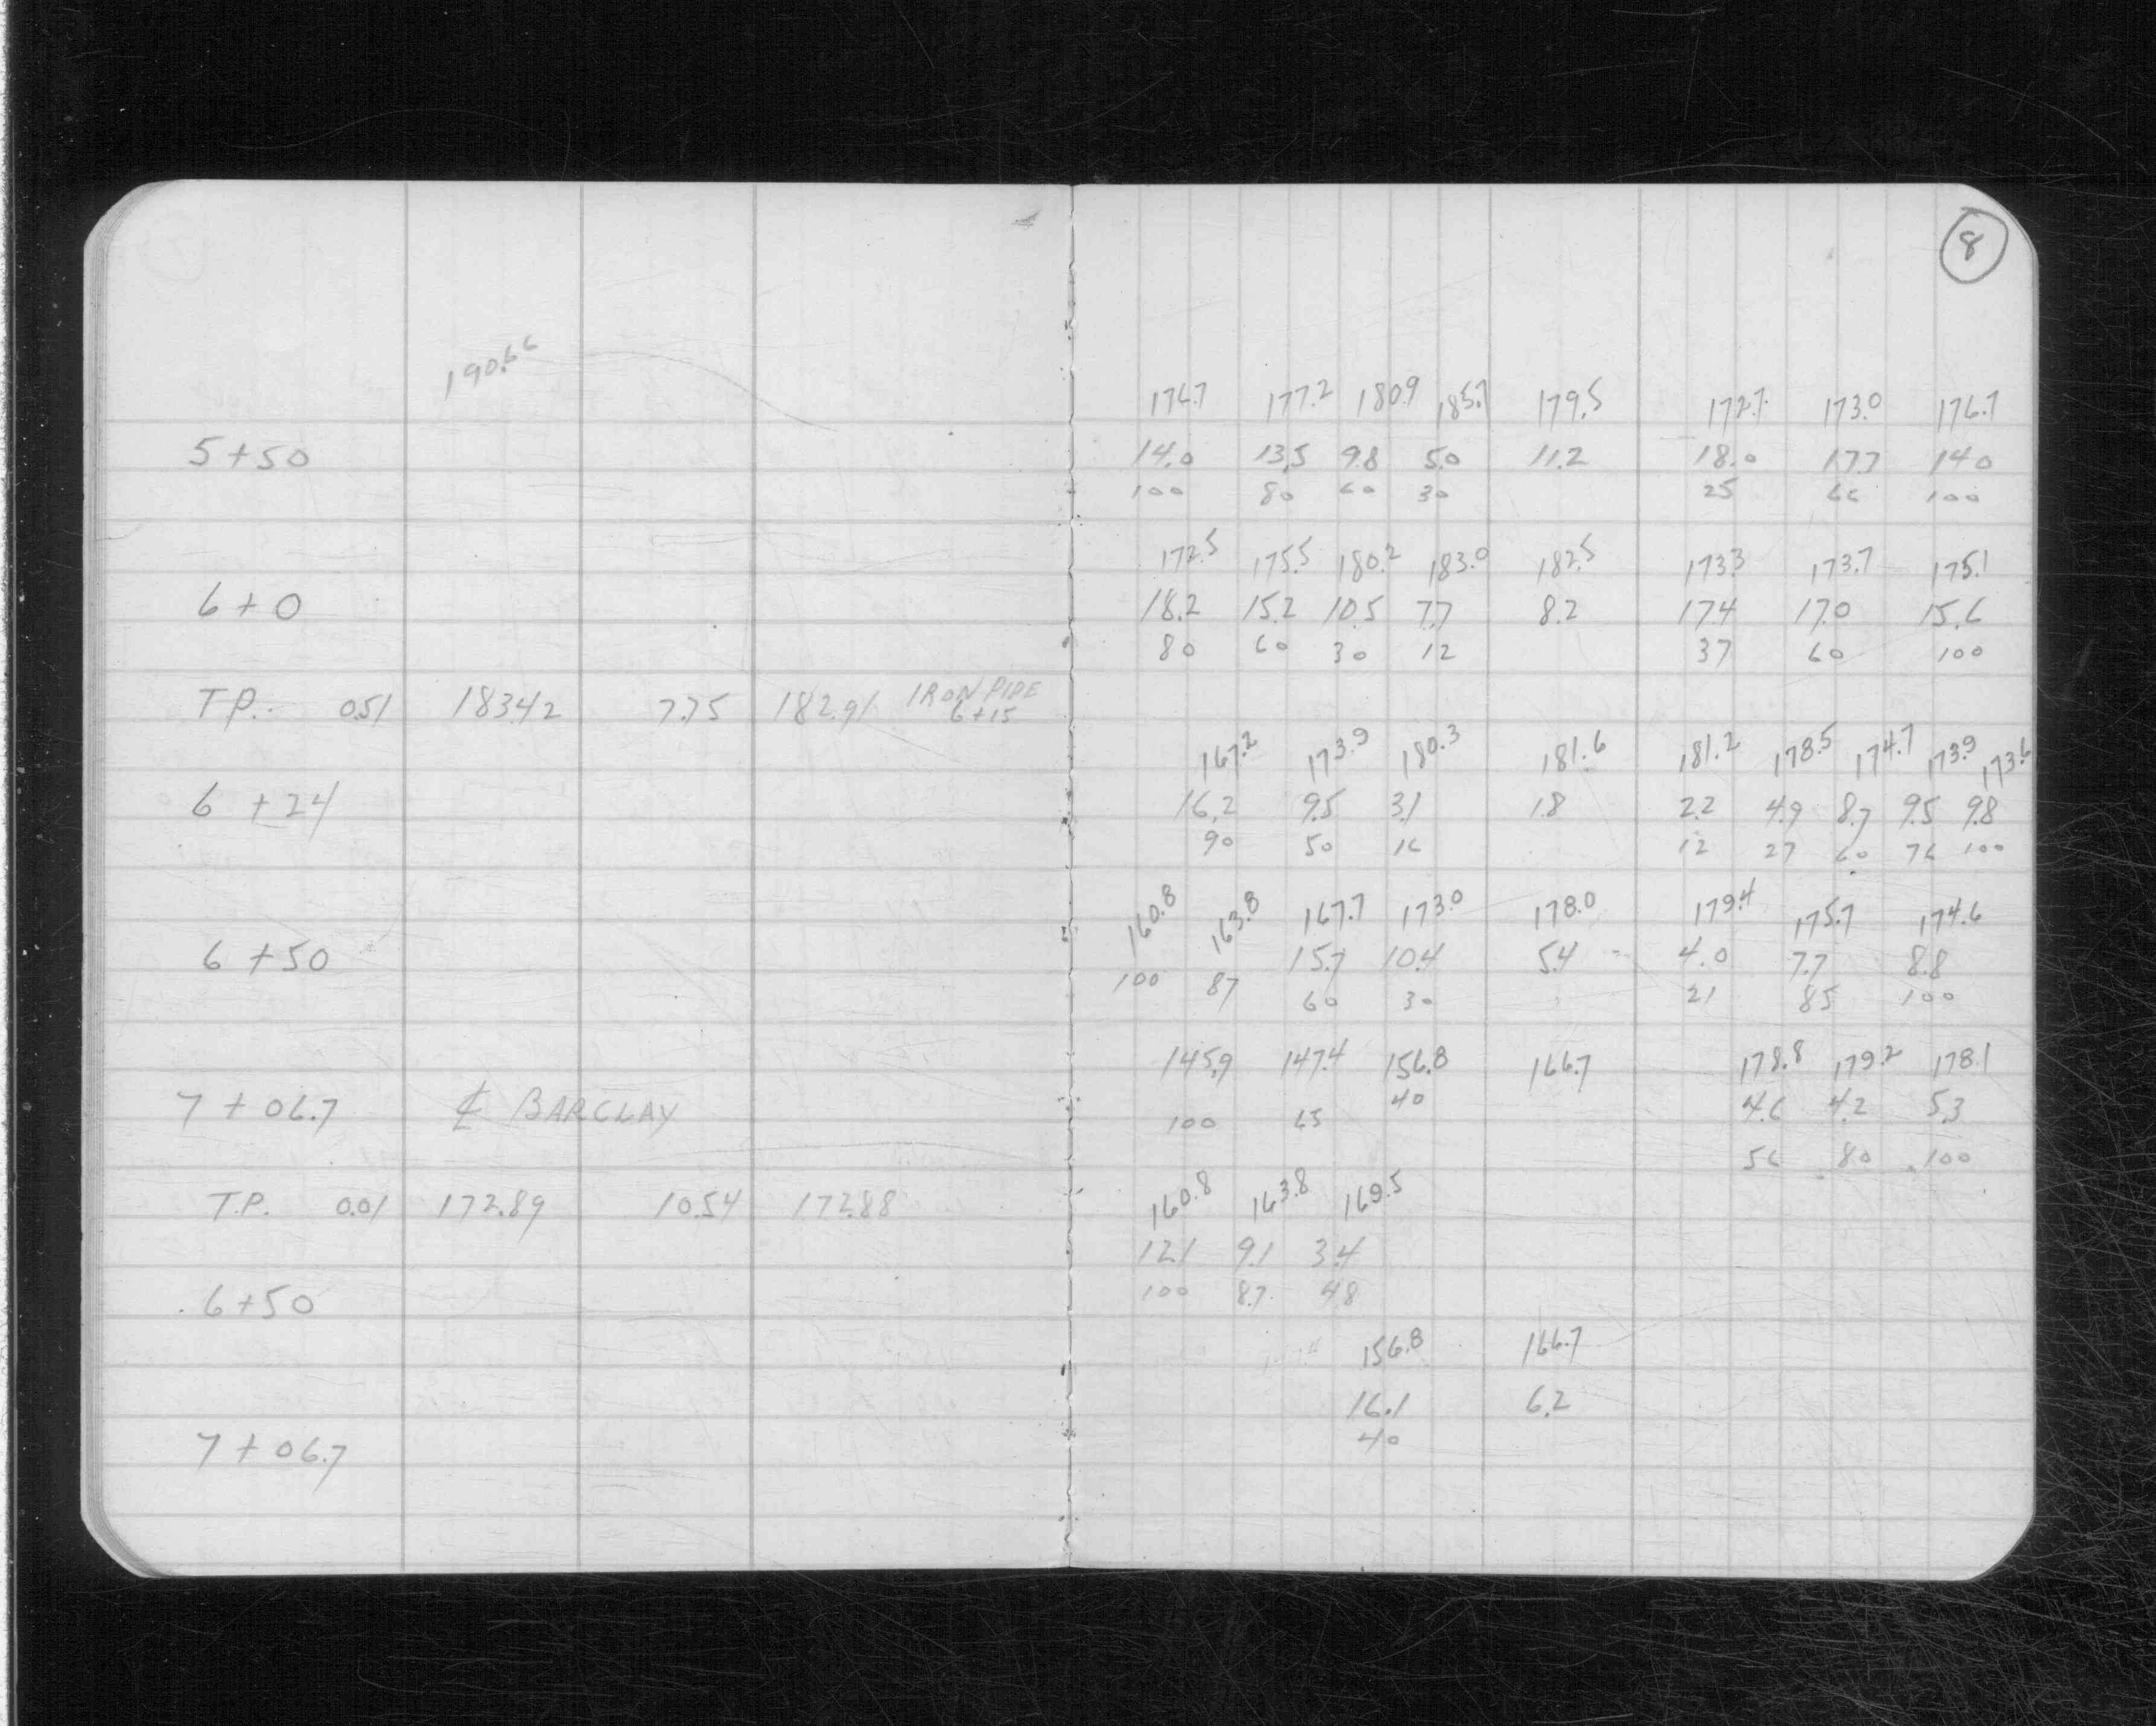 8
190.66
176.7 177.2 180.9 185.7 179.5 172.7 173.0 176.7
5+50 14.0 13.5 9.8 5.0 11.2 18.0 17.7 14.0
100 80 60 30 25 66 100
172.5 175.5 180.2 183.0 182.5 173.3 173.7 175.1
6+0 18.2 15.2 10.5 7.7 8.2 17.4 17.0 15.6
80 60 30 12 37 60 100
T.P. 0.51 183.42 7.75 182.91 IRON PIPE
6+15
167.2 173.9 180.3 181.6 181.2 178.5 174.7 173.9 173.6
6+24 16.2 9.5 3.1 1.8 2.2 4.9 8.7 9.5 9.8
90 50 16 12 27 60 76 100
160.8 163.8 167.7 173.0 178.0 179.4 175.7 174.6
6+50 15.7 10.4 5.4 4.0 7.7 8.8
100 87 60 30 21 85 100
145.9 147.4 156.8 166.7 178.8 179.2 178.1
7+06.7 ℄ BARCLAY 40 4.6 4.2 5.3
100 65 56 80 100
160.8 163.8 169.5
T.P. 0.01 172.89 10.54 172.88
12.1 9.1 3.4
6+50 100 87 48
156.8 166.7
16.1 6.2
7+06.7 40